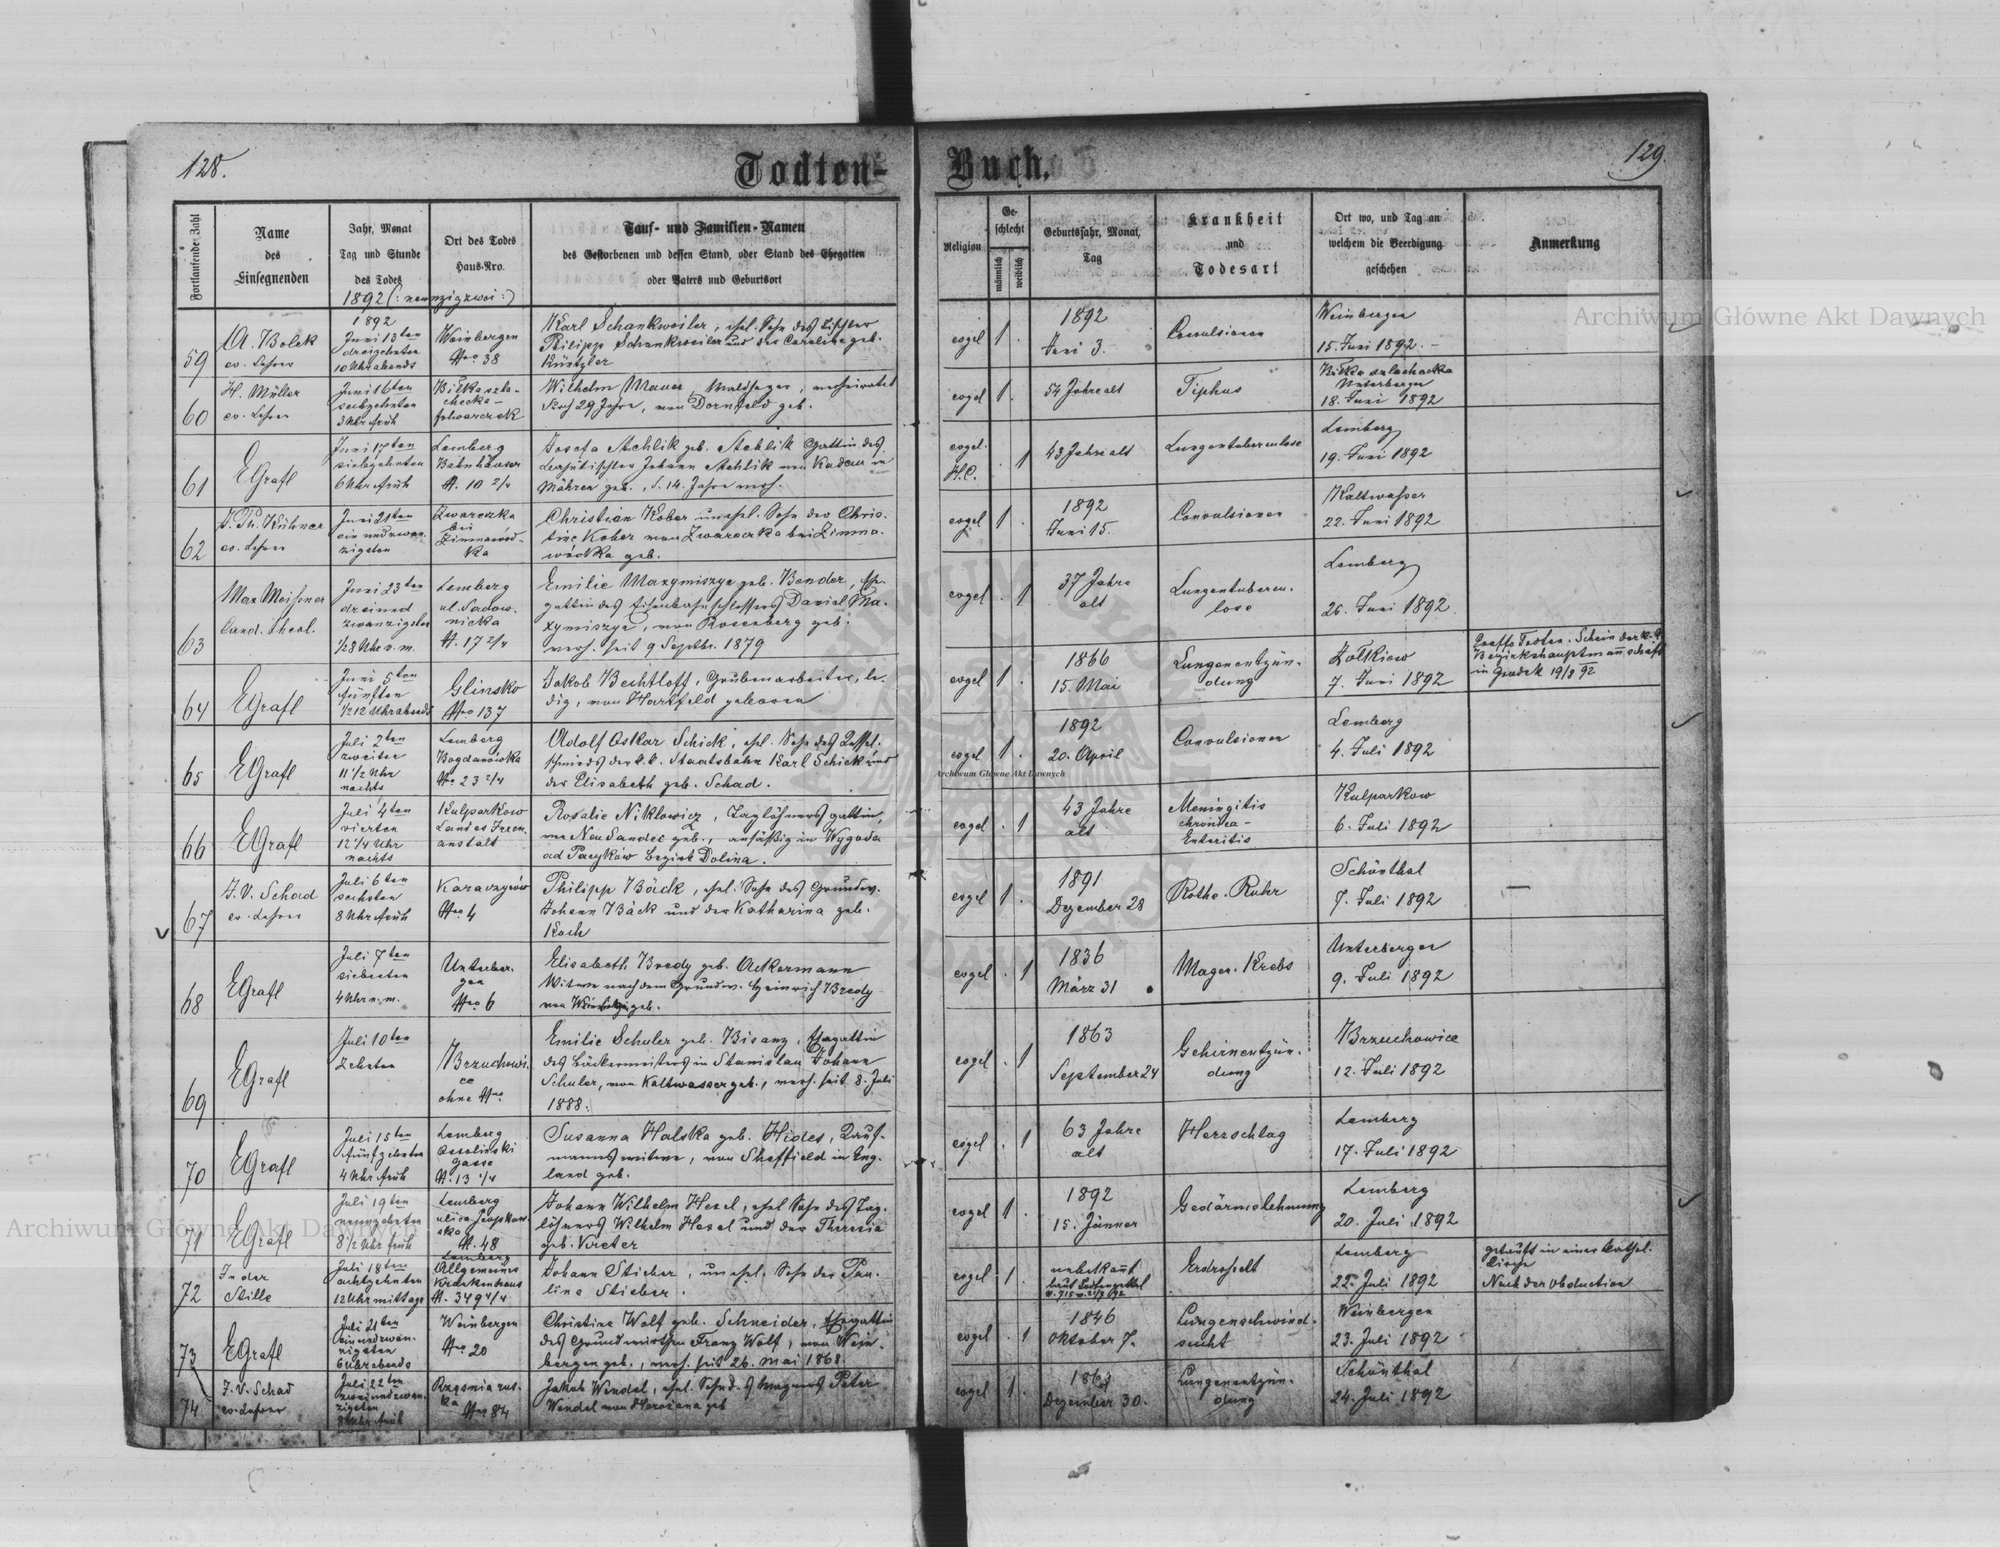 128.
Todten-
Buch.
129.
Fortlaufende Zahl
Name
des
Einsegnenden
Jahr, Monat
Tag und Stunde
des Todes
Ort des Todes
Haus-Nro.
Tauf- und Familien-Namen
des Gestorbenen und dessen Stand, oder Stand des Ehegatten
oder Vaters und Geburtsort
Religion
Ge-
schlecht
männlich
weiblich
Geburtsjahr, Monat,
Tag
Krankheit
und
Todesart
Ort wo, und Tag an
welchem die Beerdigung
geschehen
Anmerkung
1892 (: neunzigzwei :)
59
A. Bolek
ev. Lehrer
1892
Juni 13ten
dreizehnten
10 Uhr abends
Weinbergen
Nro 38
Karl Schankweiler, ehel. Sohn des Tischler
Philipp Schankweiler und der Caroline geb.
Küntzler
evgel
1
.
1892
Juni 3.
Convulsionen
Weinbergen
15. Juni 1892. –
60
H. Müller
ev. Lehrer
Juni 16ten
sechzehnten
3 Uhr früh
Biłka szla-
checka-
folwarczek
Wilhelm Mauer, Waldheger, verheiratet
durch 29 Jahre, von Dornfeld geb.
evgel
1
.
54 Jahre alt
Tiphus
Biłka szlachecka
Unterbergen
18. Juni 1892
61
EGrafl
Juni 17ten
siebzehnten
6 Uhr früh
Lemberg
Bahnhäuser
N. 10 2/4
Josefa Stehlik geb. Stehlik Gattin des
Johann Stehlik von Kadau in
Mähren geb., s. 14. Jahre verh.
evgel.
H.C.
.
1
43 Jahre alt
Lungentuberculose
Lemberg
19. Juni 1892
62
D. Ph. Kühner
ev. Lehrer
Juni 21ten
ein und zwan-
zigsten
Zwareczka
bei
Zimnawód-
ka
Christian Kober unehel. Sohn der Chris-
tine Kober von Zwareczka bei Zimna-
wódka geb.
evgel
1
.
1892
Juni 15.
Convulsionen
Kaltwasser
22. Juni 1892
63
Max Meissner
Cand. theol.
Juni 23ten
dreiund
zwanzigsten
1/2 8 Uhr v. m.
Lemberg
ul. Sadow-
nicka
N. 17 2/4
Emilie Maxymiszye geb. Bender, Ehe-
gattin des Eisenbahnschlossers Daniel Ma-
xymiszye, von Rosenberg geb.
verh. seit 9 Septbr. 1879
evgel
.
1
37 Jahre
alt
Lungentubercu-
lose
Lemberg
26. Juni 1892
64
EGrafl
Juni 5ten
fünften
1/2 12 Uhr abends
Glinsko
Nro 137
Jakob Bechtloff, Grubenarbeiter, le-
dig, von Hartfeld geboren
evgel
1
.
1866
15. Mai
Lungenentzün-
dung
Żołkiew
7. Juni 1892
Todten-Schein der k. k.
Bezirkshauptmannschaft
in Grodek 19/8 92
65
EGrafl
Juli 2ten
zweiten
11 1/2 Uhr
nachts
Lemberg
Bogdanówka
Nro 23 2/4
Adolf Oskar Schick, ehel. Sohn des Kessel-
schmieds der k. k. Staatsbahn Karl Schick und
der Elisabeth geb. Schad.
evgel
1
.
1892
20. April
Convulsionen
Lemberg
4. Juli 1892
66
EGrafl
Juli 4ten
vierten
12 1/4 Uhr
nachts
Kulparkow
Landes Irren-
anstalt
Rosalie Niklowicz, Taglöhners gattin,
von Neu Sandec geb., ansäßig in Wygoda
ad Pacyków Bezirk Dolina.
evgel
.
1
43 Jahre
alt
Meningitis
chronica-
Enteritis
Kulparkow
6. Juli 1892
67
J. V. Schad
ev. Lehrer
Juli 6ten
sechsten
8 Uhr früh
Karaczynów
Nro 4
Philipp Bäck, ehel. Sohn des Grundw.
Johann Bäck und der Katharina geb.
Koch
evgel
1
.
1891
Dezember 28
Rothe-Ruhr
Schönthal
7. Juli 1892
68
EGrafl
Juli 7ten
siebenten
4 Uhr n. m.
Unterber-
gen
Nro 6
Elisabeth Bredy geb. Ackermann
Witwe nach dem Grundw. Heinrich Bredy
von Weinbergen geb.
evgel
.
1
1836
März 31
Magen-Krebs
Unterbergen
9. Juli 1892
69
EGrafl
Juli 10ten
Zehnten
Brzuchowi-
ce
ohne Nro
Emilie Schuler geb. Bisanz, Ehegattin
des Bäckermeisters in Stanislau Johann
Schuler, von Kaltwasser geb., verh. seit 8. Juli
1888.
evgel
.
1
1863
September 24
Gehirnentzün-
dung
Brzuchowice
12. Juli 1892
70
EGrafl
Juli 15ten
fünfzehnten
4 Uhr früh
Lemberg
Ossolinski
Gasse
N. 13 1/4
Susanna Halska geb. Hides, Kauf-
mannswitwe, von Sheffield in Eng-
land geb.
evgel
.
1
63 Jahre
alt
Herzschlag
Lemberg
17. Juli 1892
71
EGrafl
Juli 19ten
neunzehnten
8 1/2 Uhr früh
Lemberg
N. 48
Johann Wilhelm Hexel, ehel Sohn des Tag-
löhners Wilhelm Hexel und der Theresia
geb. Kreter
evgel
1
.
1892
15. Jänner
Lemberg
20. Juli 1892
72
In der
Stille
Juli 18ten
achtzehnten
12 Uhr mittags
Lemberg
Allgemeines
Krankenhaus
N. 349 4/4
Johann Stieber, unehel. Sohn der Pau-
line Stieber.
evgel
1
.
unbekannt
Erdrosselt
Lemberg
22. Juli 1892
getauft in einer kathol.
Kirche
Nach der Obduction
73
EGrafl
Juli 21ten
einundzwan-
zigsten
6 Uhr abends
Weinbergen
Nro 20
Christine Wolf geb. Schneider, Ehegattin
des Grundwirthen Franz Wolf, von Wein-
bergen geb., verh. seit 26. Mai 1868.
evgel
.
1
1846
Oktober 7.
Lungenschwind-
sucht
Weinbergen
23. Juli 1892
74
J. V. Schad
ev. Lehrer
Juli 22ten
zweiundzwan-
zigsten
8 Uhr früh
Rzęsnia rus-
ka
Nro 84
Jakob Wendel, ehel. Sohn des Peter
Wendel von Horożana geb
evgel
1
.
Dezember 30.
Lungenentzün-
dung
Schönthal
24. Juli 1892
Archiwum Główne Akt Dawnych
Archiwum Główne Akt Dawnych
Archiwum Główne Akt Dawnych